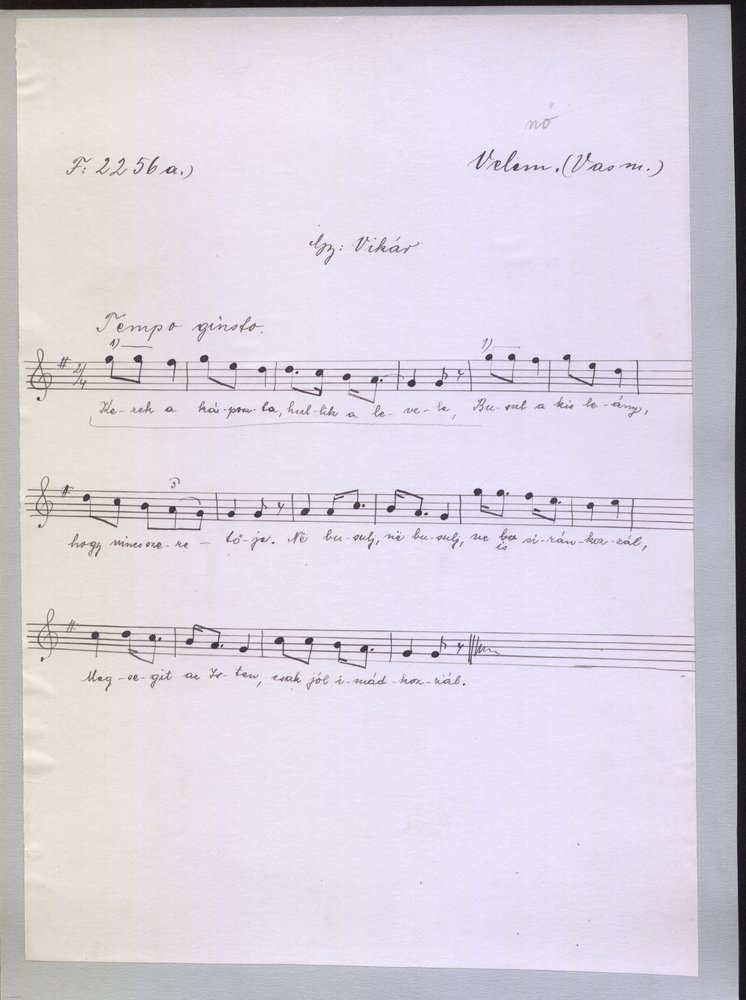 nő
F: 2256 a.)
Velem. (Vas m.)
Gy: Vikár
Tempo giusto.
1) 1)
2/4
Ke-rek a ká-posz-ta, hul-lik a le-ve-le, Bu-sul a kis le-ány,
3
hogy nincs sze-re-tő-je. Në bu-sulj, në bu-sulj, ne is si-rán-koz-zál,
Meg-se-git az Is-ten, csak jól i-mád-koz-zál.